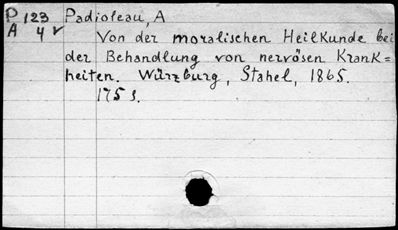 P 123 Padioleau, A
A 4 v
Von der moralischen Heilkunde bei
der Behandlung von nervösen Krank=
heiten. Würzburg, Stahel, 1865.
175 s.